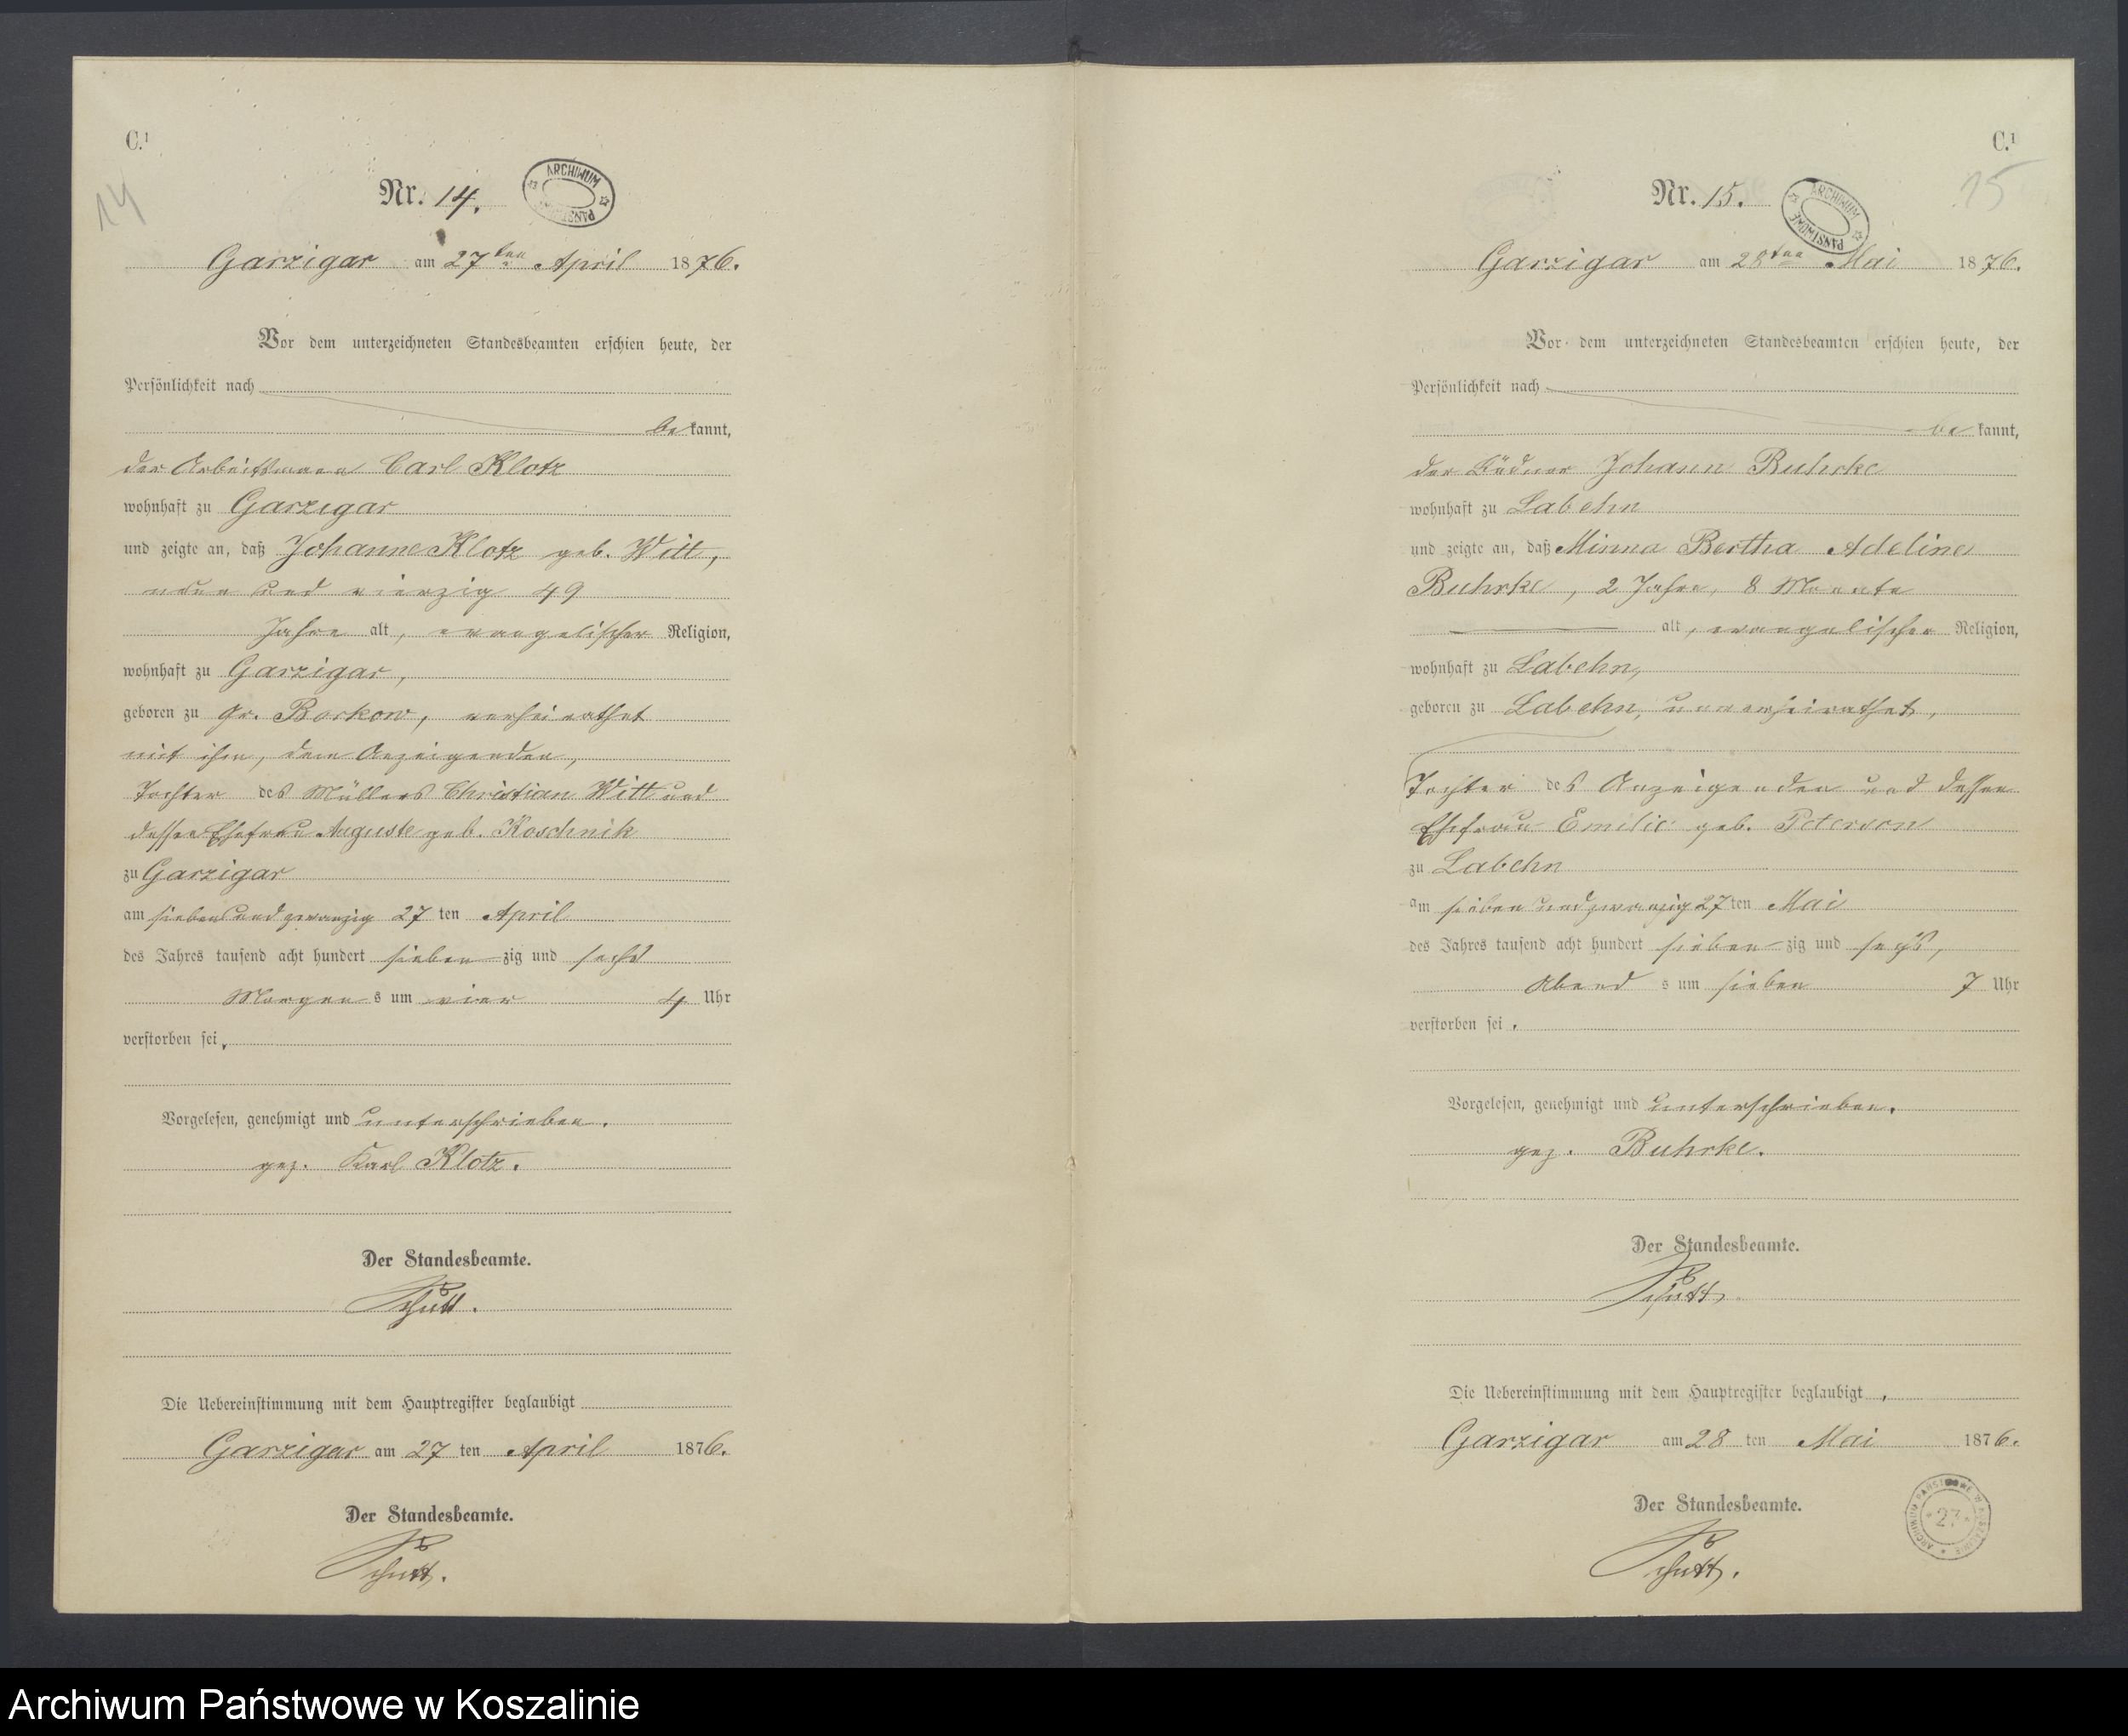 C.¹
14
Nr. 14.
ARCHIWUM PAŃSTWOWE
Garzigar am 27ten April 1876.
Vor dem unterzeichneten Standesbeamten erschien heute, der
Persönlichkeit nach
bekannt,
der Arbeitsmann Carl Klotz
wohnhaft zu Garzigar
und zeigte an, daß Johanne Klotz geb. Witt,
neun und vierzig 49
Jahre alt, evangelischer Religion,
wohnhaft zu Garzigar,
geboren zu Gr. Borkow, verheirathet
mit ihm, dem Anzeigenden,
Tochter des Müllers Christian Witt und
dessen Ehefrau Auguste geb. Koschnik
zu Garzigar
am sieben und zwanzig 27 ten April
des Jahres tausend acht hundert sieben zig und sechs
Morgens um vier 4 Uhr
verstorben sei.
Vorgelesen, genehmigt und unterschrieben.
gez. Karl Klotz.
Der Standesbeamte.
Schütt.
Die Uebereinstimmung mit dem Hauptregister beglaubigt
Garzigar am 27 ten April 1876.
Der Standesbeamte.
Schütt.
C.¹
15
Nr. 15.
ARCHIWUM PAŃSTWOWE
Garzigar am 28ten Mai 1876.
Vor dem unterzeichneten Standesbeamten erschien heute, der
Persönlichkeit nach
bekannt,
der Büdner Johann Buhrke
wohnhaft zu Labehn
und zeigte an, daß Minna Bertha Adeline
Buhrke, 2 Jahre, 8 Monate
alt, evangelischer Religion,
wohnhaft zu Labehn,
geboren zu Labehn, unverheirathet,
Tochter des Anzeigenden und dessen
Ehefrau Emilie geb. Peterson
zu Labehn
am sieben und zwanzig 27 ten Mai
des Jahres tausend acht hundert sieben zig und sechs,
Abends um sieben 7 Uhr
verstorben sei.
Vorgelesen, genehmigt und unterschrieben.
gez. Buhrke.
Der Standesbeamte.
Schütt.
Die Uebereinstimmung mit dem Hauptregister beglaubigt.
Garzigar am 28 ten Mai 1876.
Der Standesbeamte.
Schütt.
ARCHIWUM PAŃSTWOWE W KOSZALINIE
27
Archiwum Państwowe w Koszalinie